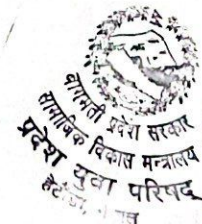 बागमती प्रदेश सरकार
सामाजिक विकास मन्त्रालय
प्रदेश युवा परिषद्